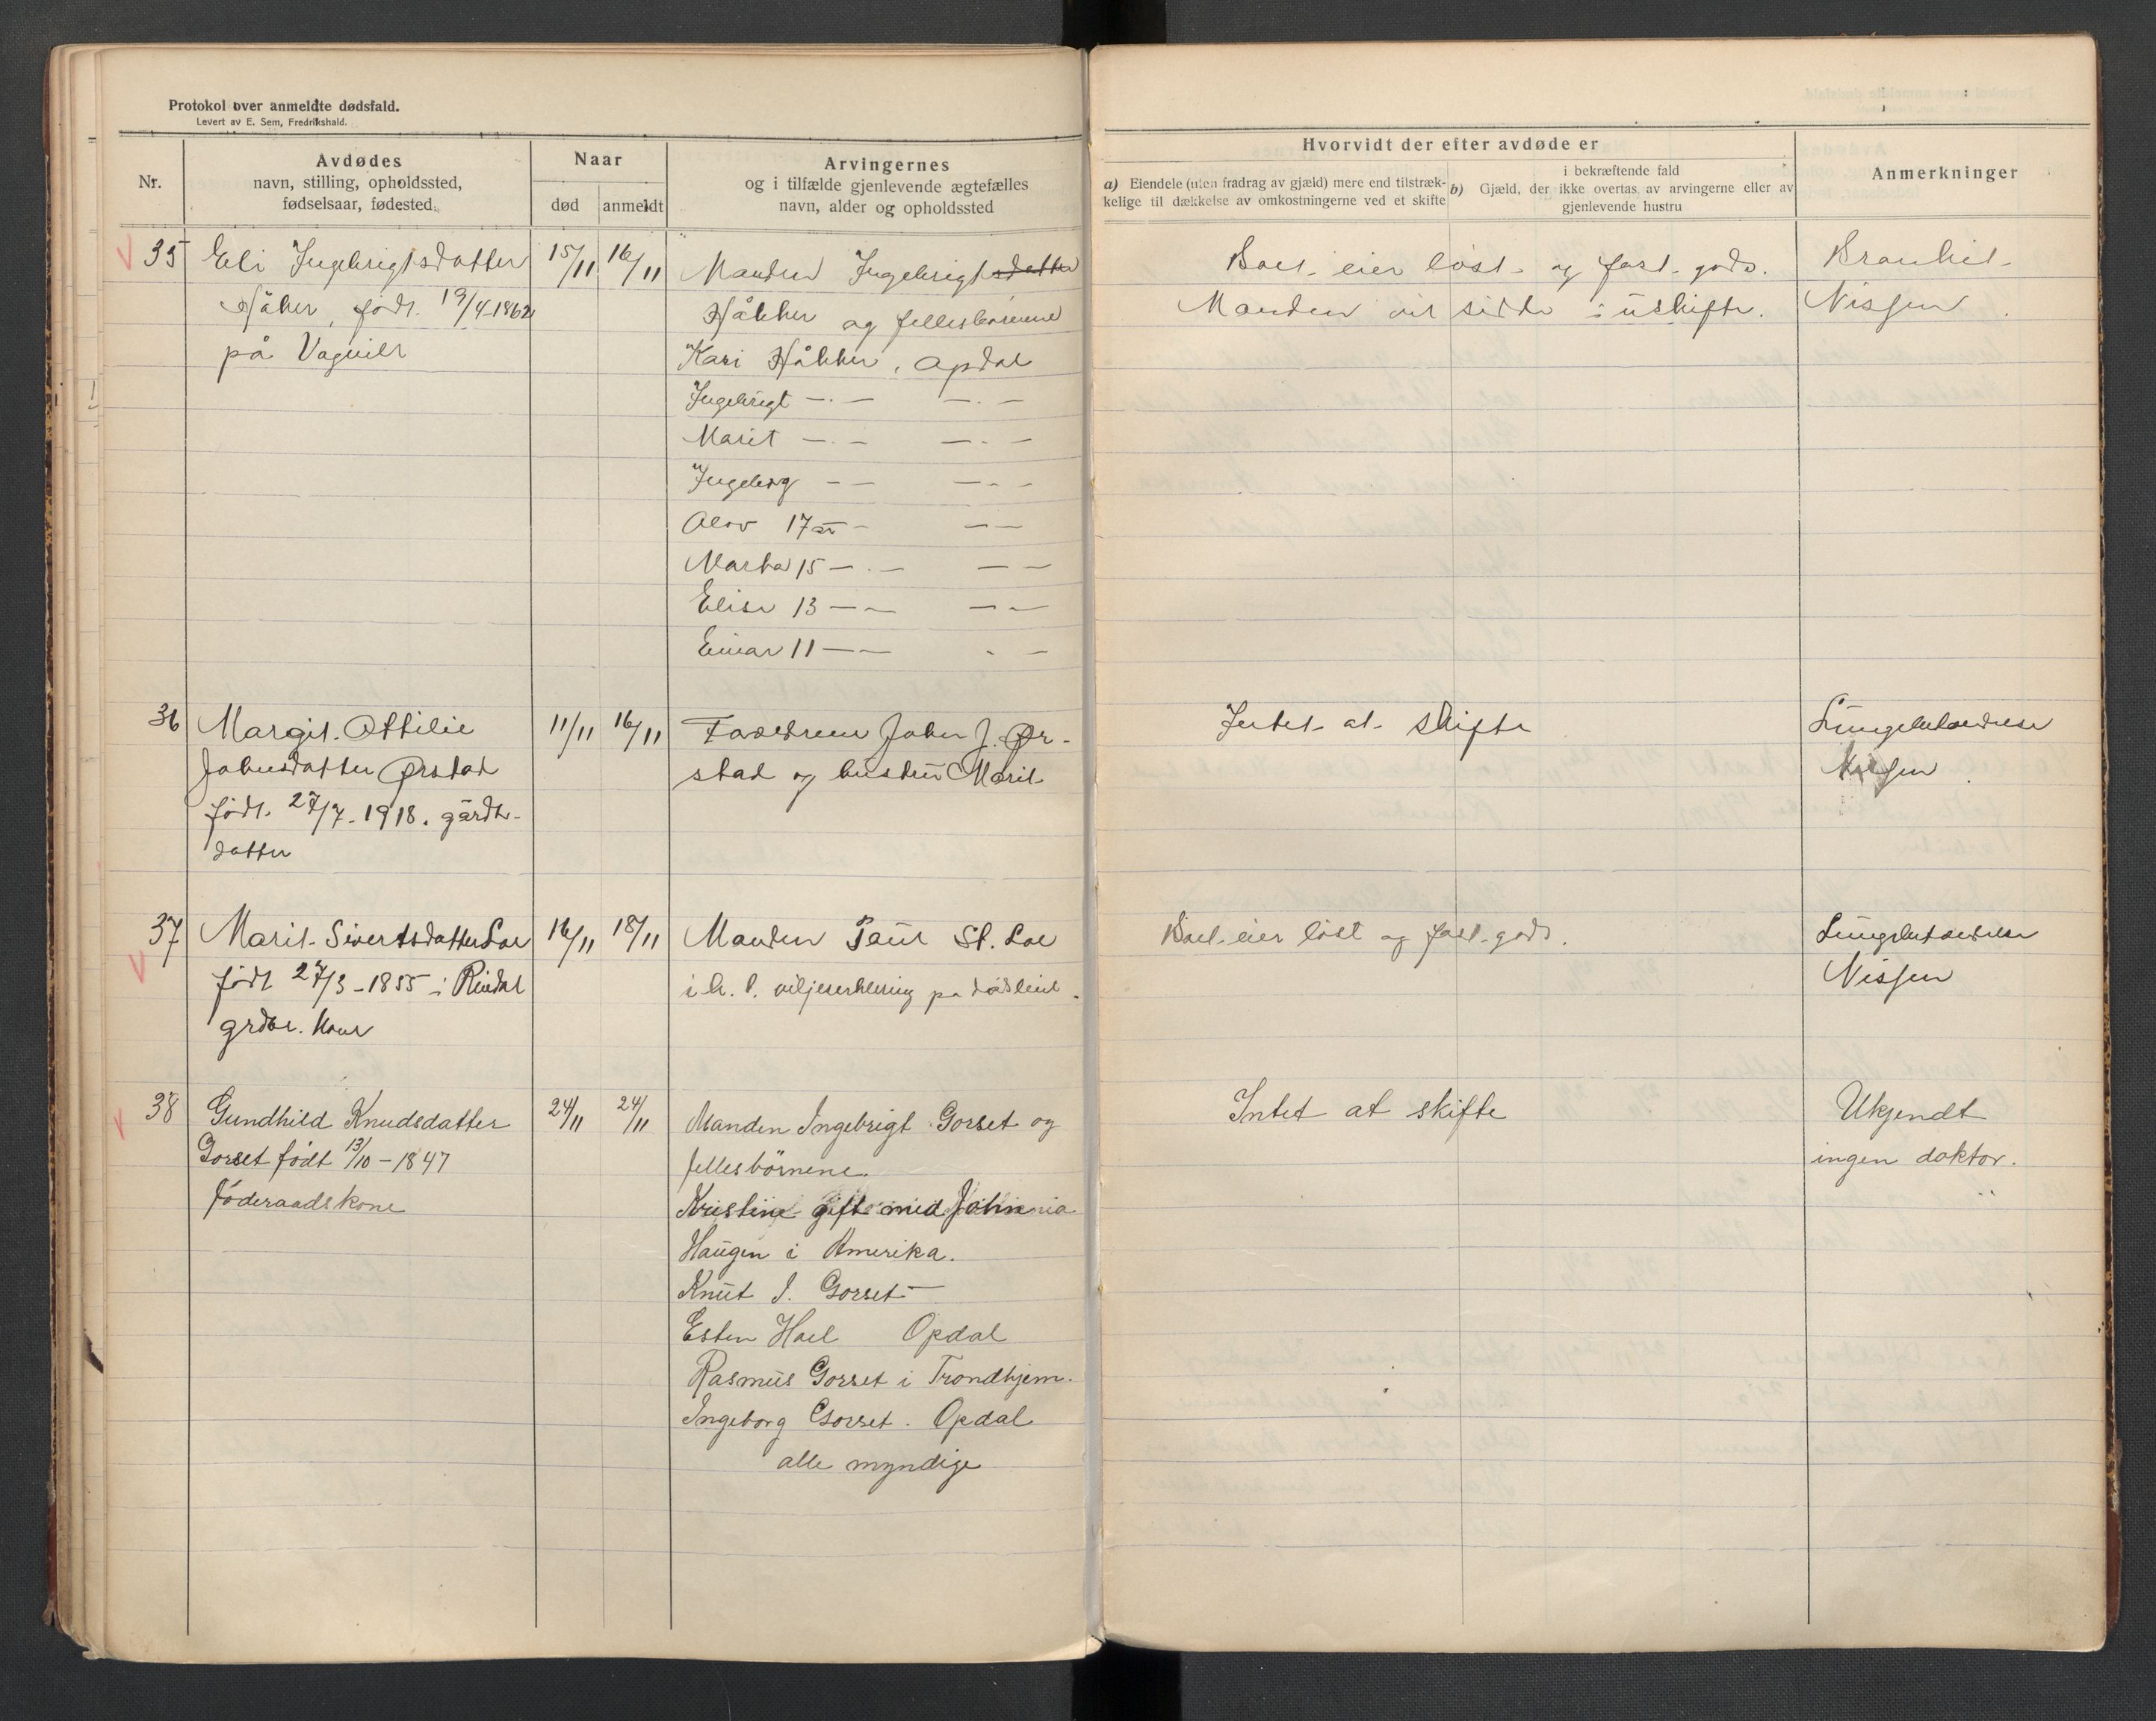 Protokol over anmeldte dødsfald.
Levert av E. Sem, Fredrikshald.
Nr.
Avdødes
navn, stilling, opholdssted,
fødselsaar, fødested.
Naar
død
anmeldt
Arvingernes
og i tilfælde gjenlevende ægtefælles
navn, alder og opholdssted
Hvorvidt der efter avdøde er
a) Eiendele (uten fradrag av gjæld) mere end tilstræk-
kelige til dækkelse av omkostningerne ved et skifte
i bekræftende fald
b) Gjæld, der ikke overtas av arvingerne eller av
gjenlevende hustru
Anmerkninger
35
Eli Ingebrigtsdatter
født 19/4-1862
på Vognill
15/11
16/11
Manden Ingebrigtsdatter
Håkker og fellesbørnene
Kari Håkker, Opdal
Ingebrigt —.— —.—
Marit —.— —.—
Ingeborg — — —.—
Olov 17 år — — —
Marta 15 —.— — —
Elise 13 — — — —
Einar 11 — — - —
Boet eier løst og fast gods.
Manden vil sidde i uskifte.
Bronkit
Nissen
36
Margit Ottilie
Johnsdatter Ørstad
født 27/7-1918. gårdb.
datter
11/11
16/11
Forældrene John J. Ør-
stad og hustru Marit
Intet at skifte
Lungebetændelse
Nissen
37
Marit Sivertsdatter Loe
født 27/3-1855 i Rindal
grdbr. kone
16/11
18/11
Manden Paul St. Loe
i h. t. viljeserklering på
Boet eier løst og fast gods.
Lungebetændelse
Nissen
38
Gundhild Knudsdatter
Gorset født 13/10-1847
Føderaadskone
24/11
24/11
Manden Ingebrigt Gorset og
fellesbörnene
Kristine gift med John
Haugen i Amerika.
Knut I. Gorset —
Esten Hoel Opdal
Rasmus Gorset i Trondhjem.
Ingeborg Gorset. Opdal
alle myndige
Intet at skifte
Ukjendt
ingen doktor.